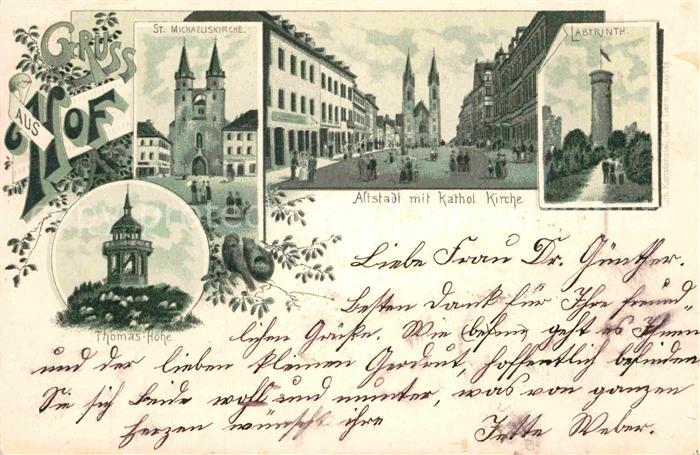 GRUSS
AUS
HOF
ST. MICHAELISKIRCHE.
LABYRINTH.
Altstadt mit Kathol. Kirche
Thomas-Höhe
Liebe Frau Dr. Günther.
Besten Dank für Ihre freund
lichen Grüße. Wie geht es Ihnen
und der lieben kleinen Gertrud, hoffentlich befinden
Sie sich beide wohl und munter, was von ganzen
Herzen wünscht ihre Jette Weber.